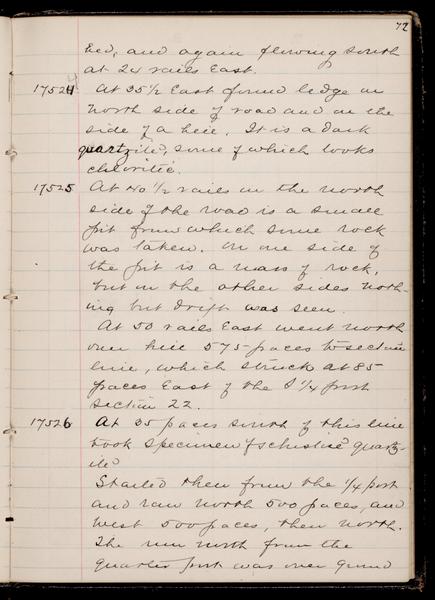 72
bed, and again flowing south
at 24 rails East.
17524 At 35 1/2 East found ledge on
north side of road and on the
side of a hill. It is a dark
quartzite, some of which looks
chloritic.
17525 At 40 1/2 rails on the north
side of the road is a small
pit from which some rock
was taken. On one side of
the pit is a mass of rock,
but on the other sides noth-
ing but drift was seen.
At 50 rails East went north
over hill 575 paces to section
line, which struck at 85
paces East of the S 1/4 post
section 22.
17526 At 35 paces south of this line
took specimen of schistose quartz-
ite
Started then from the 1/4 post
and ran north 500 paces, and
West 500 paces, then north.
The run north from the
quarter post was over ground